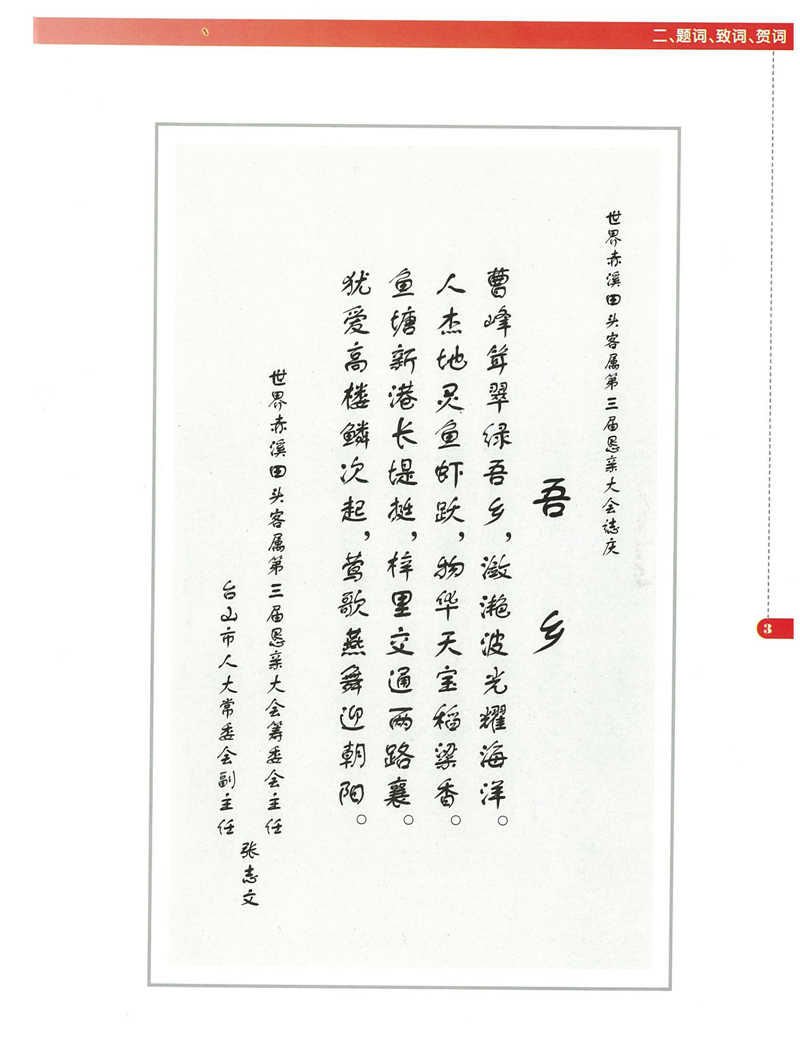 二、题词、致词、贺词
世界赤溪田头客属第三届恳亲大会志庆
吾乡
曹峰耸翠绿吾乡，潋滟波光耀海洋。
人杰地灵鱼虾跃，物华天宝稻粱香。
鱼塘新港长堤挺，梓里交通两路襄。
犹爱高楼鳞次起，莺歌燕舞迎朝阳。
世界赤溪田头客属第三届恳亲大会筹委会主任
台山市人大常委会副主任
张志文
3